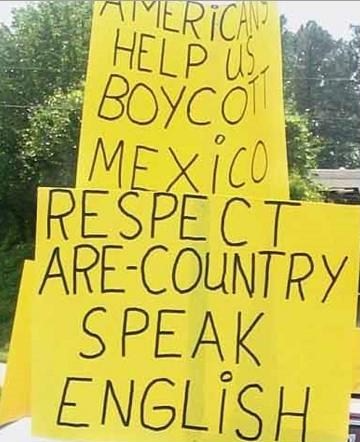 AMERiCANS
HELP US
BOYCOTT
MEXiCO
RESPECT
ARE-COUNTRY
SPEAK
ENGLiSH